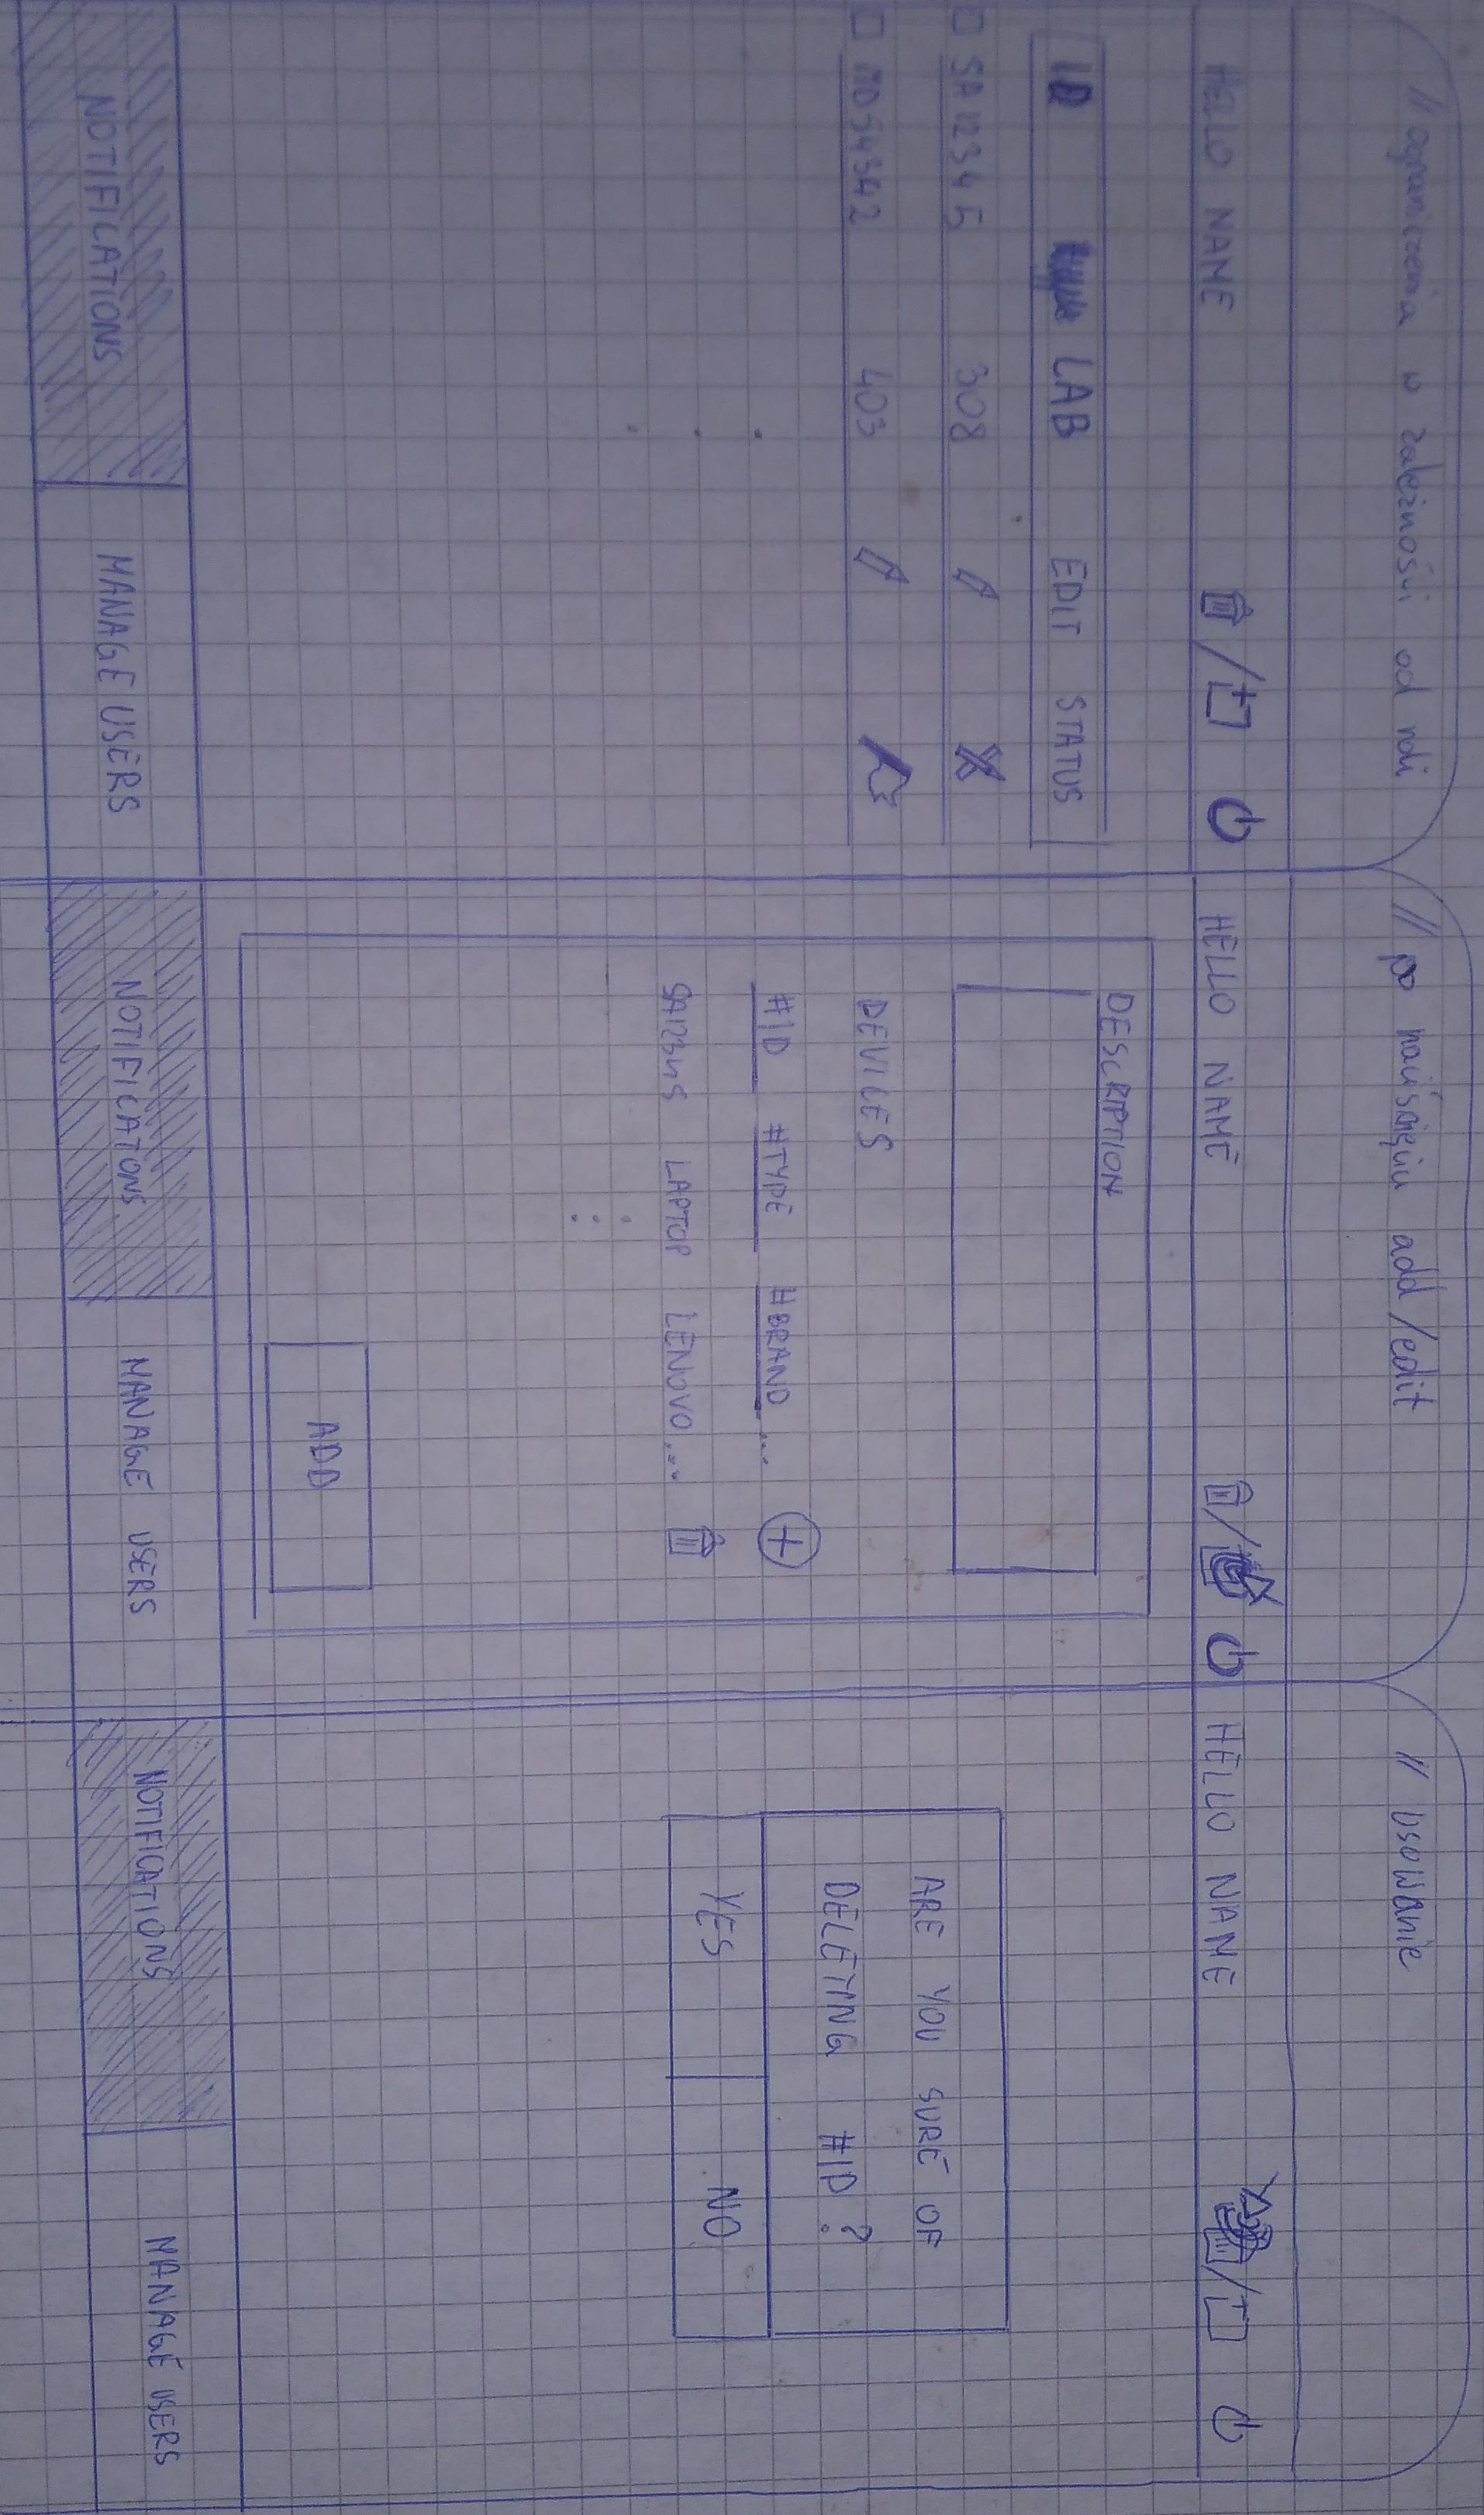 // ograniczenia w zależności od roli
HELLO NAME
LAB EDIT STATUS
SA12345 308
MO54342 403
NOTIFICATIONS MANAGE USERS
// po naciśnięciu add/edit
HELLO NAME
DESCRIPTION
DEVICES
#ID #TYPE #BRAND...
SA12345 LAPTOP LENOVO...
ADD
NOTIFICATONS MANAGE USERS
// usowanie
HELLO NAME
ARE YOU SURE OF
DELETING #ID?
YES NO
NOTIFICATIONS MANAGE USERS